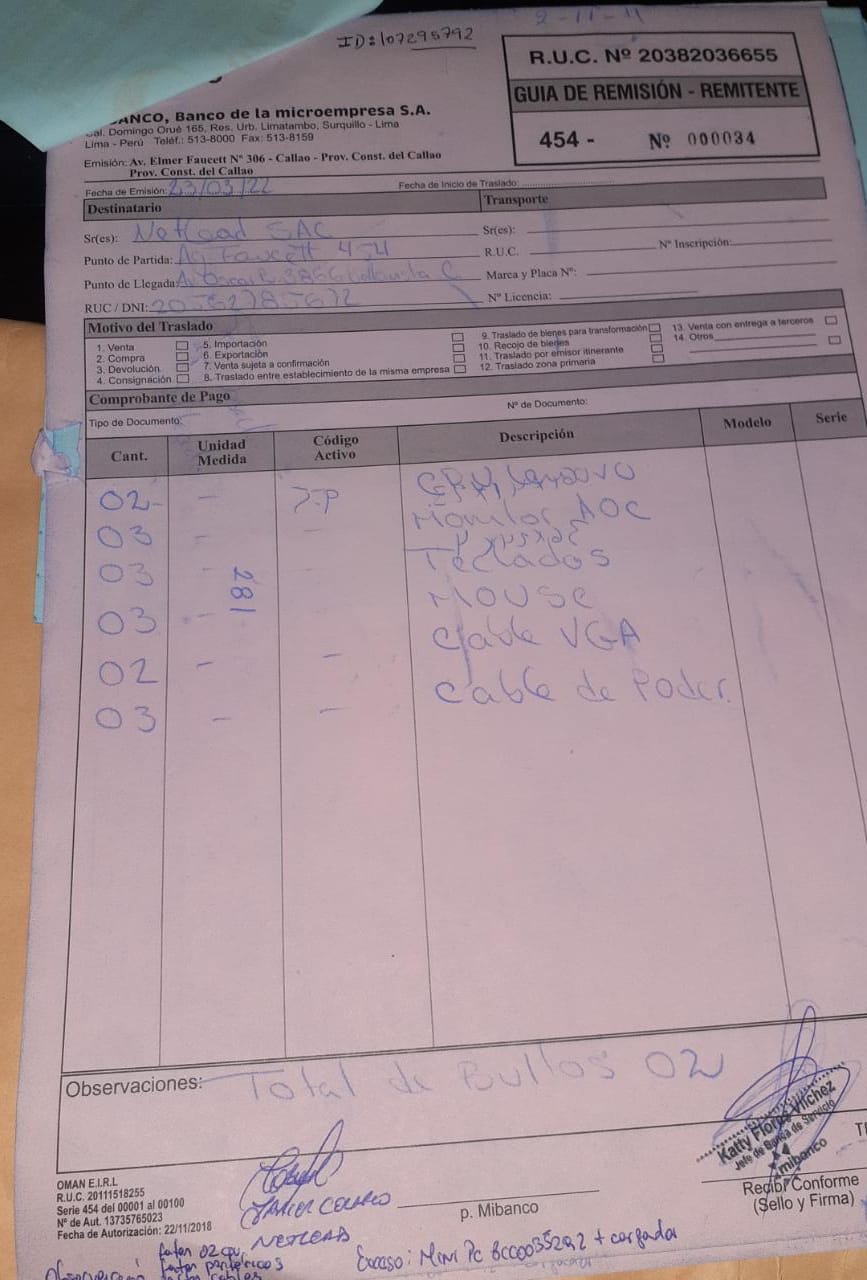 ID:107295792
R.U.C. Nº 20382036655
GUIA DE REMISIÓN - REMITENTE
454 - Nº 000034
BANCO, Banco de la microempresa S.A.
Cal. Domingo Orué 165, Res. Urb. Limatambo, Surquillo - Lima
Lima - Perú Teléf.: 513-8000 Fax: 513-8159
Emisión: Av. Elmer Faucett Nº 306 - Callao - Prov. Const. del Callao
Prov. Const. del Callao
Fecha de Emisión: 23/03/22 Fecha de Inicio de Traslado:
Destinatario Transporte
Sr(es): Netload SAC Sr(es):
Punto de Partida: Ag Faucett 454 R.U.C. Nº Inscripción:
Punto de Llegada: Marca y Placa Nº:
RUC / DNI: Nº Licencia:
Motivo del Traslado
1. Venta 5. Importación 9. Traslado de bienes para transformación 13. Venta con entrega a terceros
2. Compra 6. Exportación 10. Recojo de bienes 14. Otros
3. Devolución 7. Venta sujeta a confirmación 11. Traslado por emisor itinerante
4. Consignación 8. Traslado entre establecimiento de la misma empresa 12. Traslado zona primaria
Comprobante de Pago
Tipo de Documento: Nº de Documento:
Cant. Unidad Medida Código Activo Descripción Modelo Serie
02 -
03 - - Monitor AOC
03 - - Teclados
281
03 - Mouse
Cable VGA
02 - -
03 - - Cable de Poder.
Observaciones: Total de Bultos 02
Katty Flores Vilchez
Jefe de Banca de Servicio
mibanco
OMAN E.I.R.L
R.U.C. 20111518255
Serie 454 del 00001 al 00100
Nº de Aut. 13735765023
Fecha de Autorización: 22/11/2018
NETLEAD
p. Mibanco
Recibí Conforme
(Sello y Firma)
faltan 02 cpu
faltan periféricos
Exceso: Mini Pc + cargador